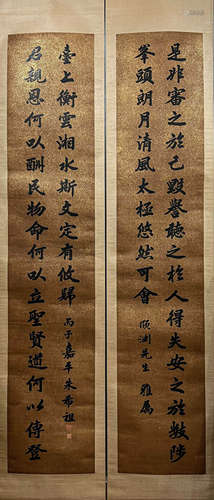 是非審之於己毀譽聽之於人得失安之於數陟
峯頭朗月清風太極悠然可會
頤淵先生 雅屬
君親恩何以酬民物命何以立聖賢道何以傳登
臺上衡雲湘水斯文定有攸歸
丙子嘉平朱希祖